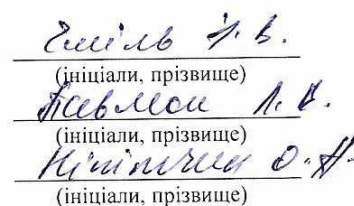 Еміль І. В.
(ініціали, прізвище)
Павлюк Л. В.
(ініціали, прізвище)
О. А.
(ініціали, прізвище)